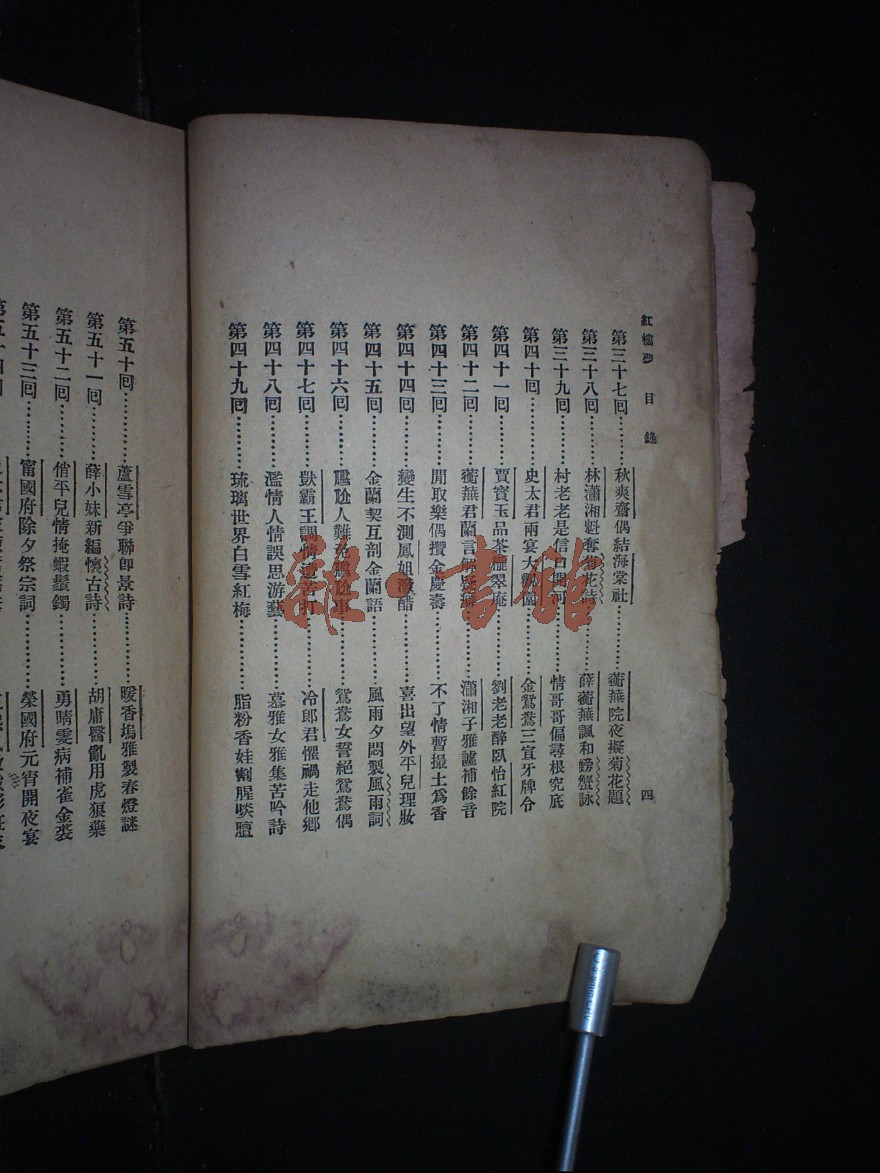 紅樓夢 目錄 四
第三十七回………秋爽齋偶結海棠社………蘅蕪院夜擬菊花題
第三十八回………林瀟湘魁奪菊花詩………薛蘅蕪諷和螃蟹詠
第三十九回………村老老是信口開河………情哥哥偏尋根究底
第四十回………史太君兩宴大觀園………金鴛鴦三宣牙牌令
第四十一回………賈寶玉品茶櫳翠庵………劉老老醉臥怡紅院
第四十二回………蘅蕪君蘭言解疑癖………瀟湘子雅謔補餘音
第四十三回………閒取樂偶攢金慶壽………不了情暫撮土爲香
第四十四回………變生不測鳳姐潑醋………喜出望外平兒理妝
第四十五回………金蘭契互剖金蘭語………風雨夕悶製風雨詞
第四十六回………尷尬人難免尷尬事………鴛鴦女誓絕鴛鴦偶
第四十七回………獃霸王調情遭苦打………冷郎君懼禍走他鄉
第四十八回………濫情人情誤思游藝………慕雅女雅集苦吟詩
第四十九回………琉璃世界白雪紅梅………脂粉香娃割腥啖膻
第五十回………蘆雪亭爭聯卽景詩………暖香塢雅製春燈謎
第五十一回………薛小妹新編懷古詩………胡庸醫亂用虎狼藥
第五十二回………俏平兒情掩蝦鬚鐲………勇晴雯病補雀金裘
第五十三回………甯國府除夕祭宗祠………榮國府元宵開夜宴
雜·書館